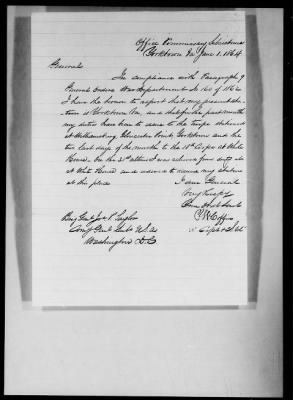 Office Commissary Subsistence
Yorktown Va June 1. 1864
General
In compliance with Paragraph 9
General Orders War Department of 1864
I have the honor to report that my present sta-
tion is Yorktown Va, and that for the past month
my duties have been to issue to the troops stationed
at Williamsburg Gloucester Point, Yorktown and the
two last days of the month to the 18th Corps at White
House. On the 31st ultimo I was relieved from duty
at White House and ordered to resume my station
at this place
I am General
Very Resply
Your Obdt Servt
Capt &
Brig Genl Jos P. Taylor
Comy Genl Subs U.S.A
Washington D.C